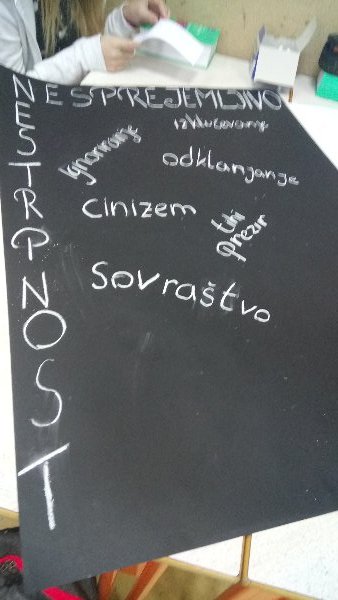 NESPREJEMLJIVO
NESTRPNOST
izključevanje
Ignoriranje
odklanjanje
cinizem
tihi
prezir
Sovraštvo